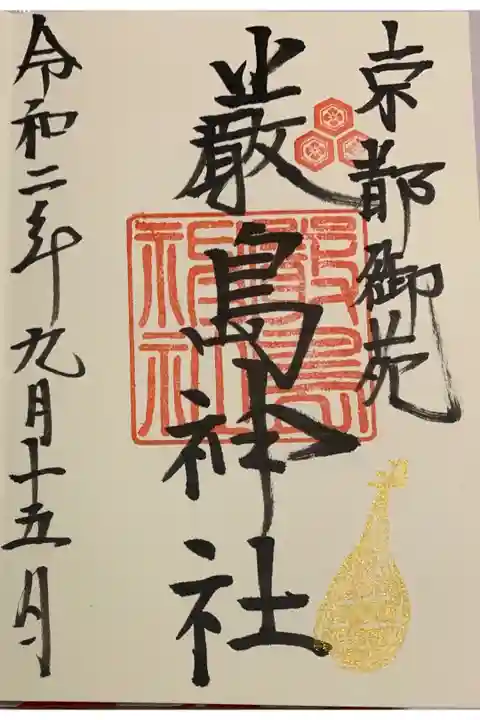 京都御苑
嚴島神社
嚴島
神社
令和二年九月十五日